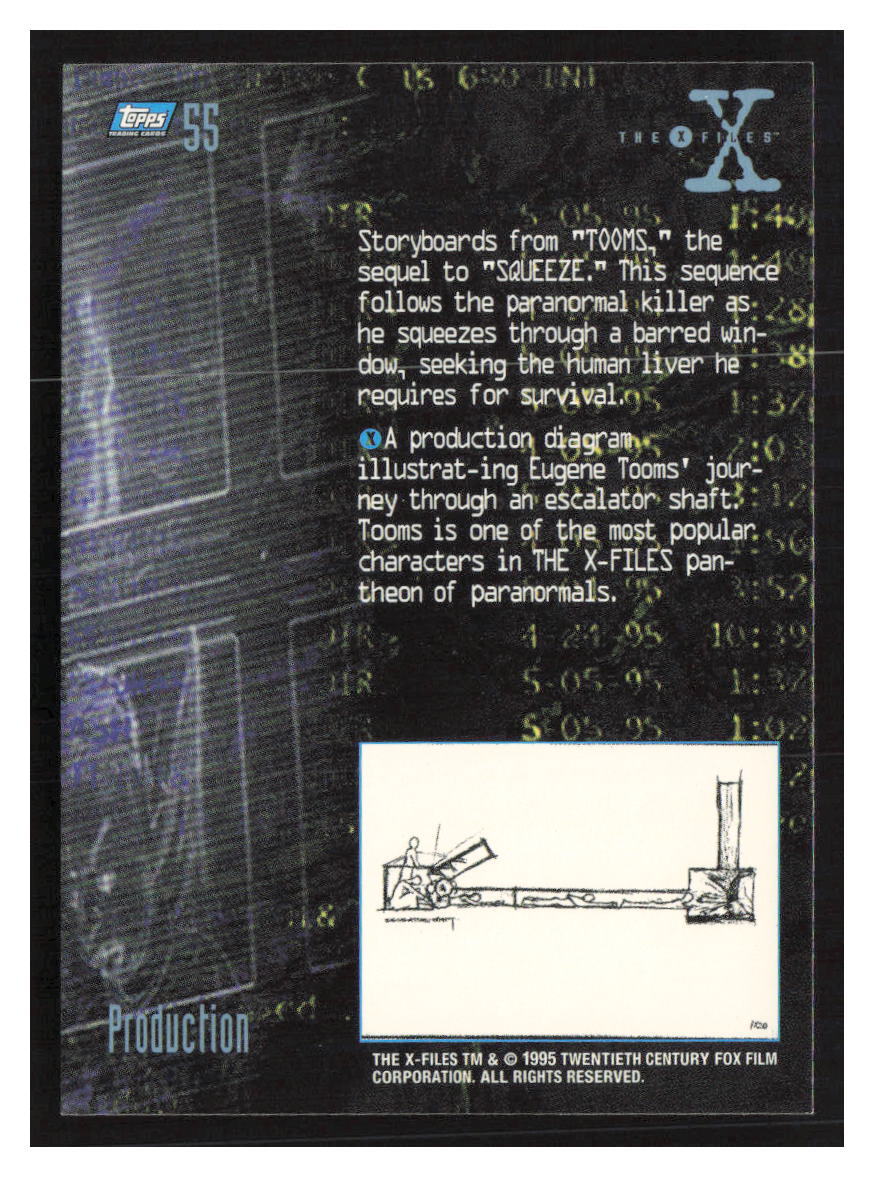 C US GSO INI
Topps
TRADING CARDS
55
THE X FILES™
DIR 5-05-95 1:40
Storyboards from "TOOMS," the
sequel to "SQUEEZE." This sequence
follows the paranormal killer as
he squeezes through a barred win-
dow, seeking the human liver he
requires for survival.
X A production diagram
illustrat-ing Eugene Tooms' jour-
ney through an escalator shaft.
Tooms is one of the most popular
characters in THE X-FILES pan-
theon of paranormals.
DIR 4-24-95 10:39
DIR 5-05-95 1:37
5-05-95 1:02
Production
THE X-FILES TM & © 1995 TWENTIETH CENTURY FOX FILM
CORPORATION. ALL RIGHTS RESERVED.